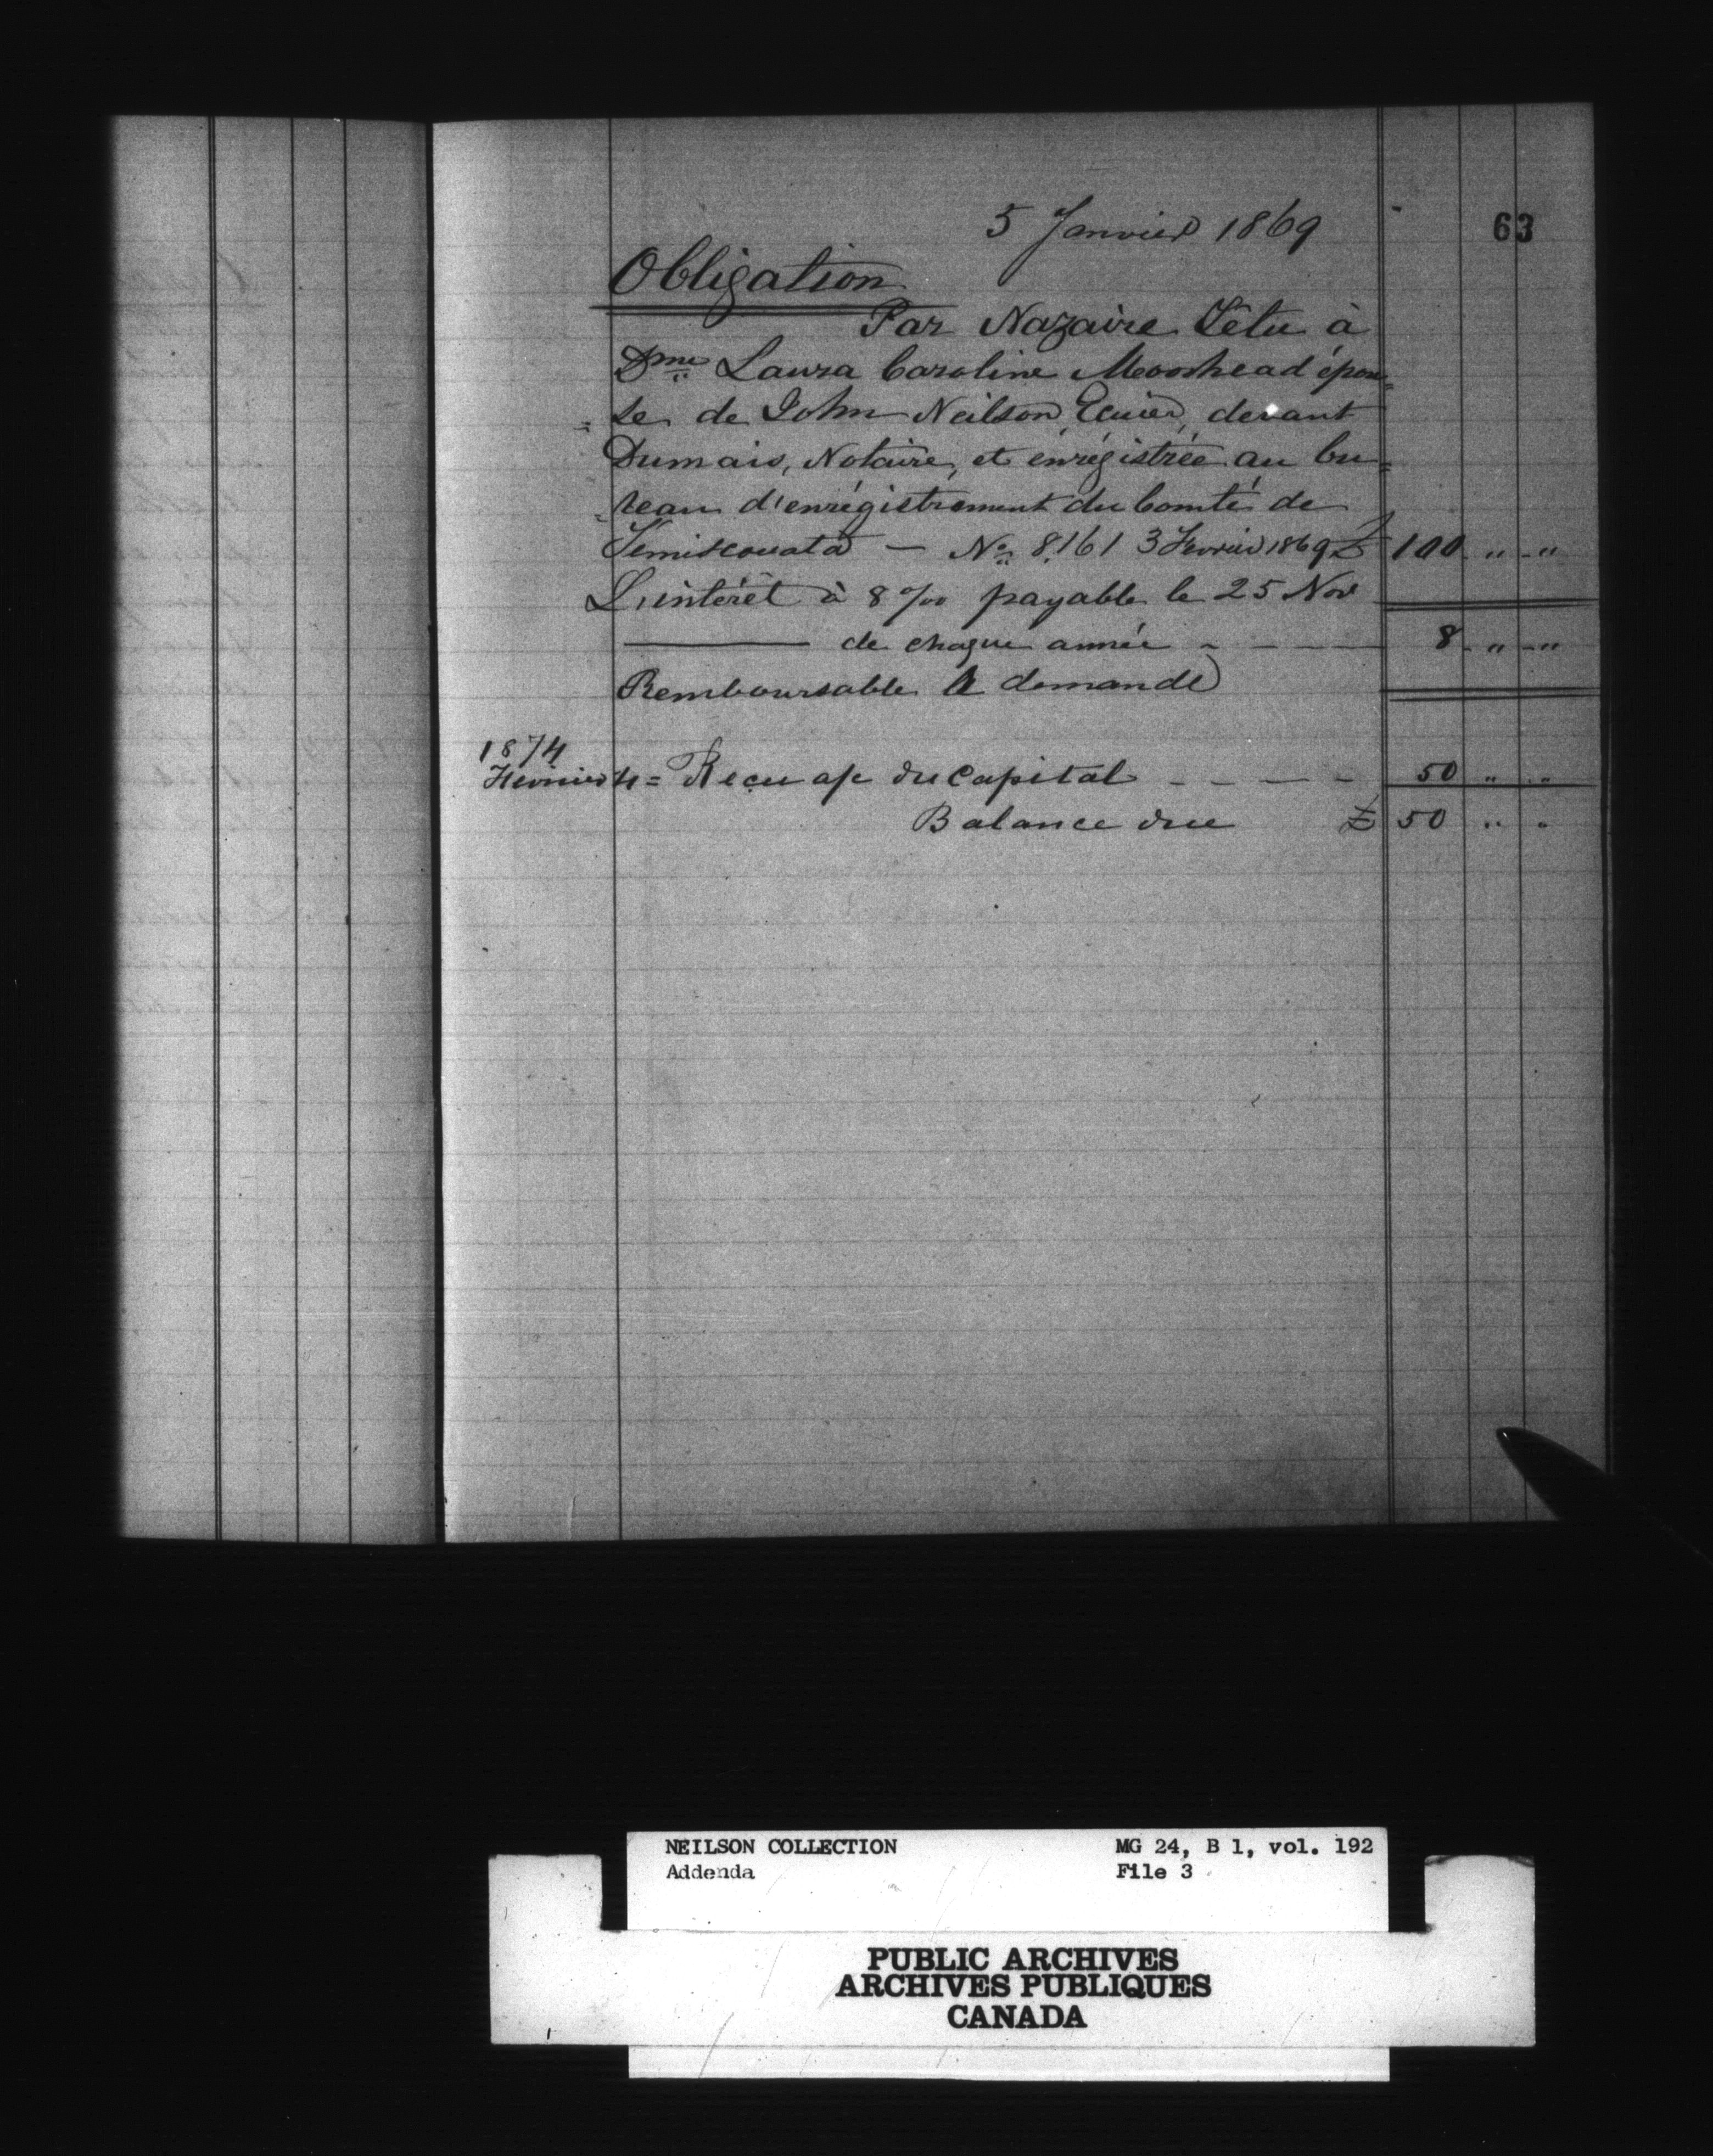 5 Janvier 1869
63
Obligation
Par Nazaire Têtu à
Dme Laura Caroline Moorhead épou=
=se de John Neilson, Ecuier, devant
Dumais, Notaire, et enrégistrée au bu=
=reau d'enrégistrement du Comté de
Temiscouata — No 8161 3 Fevrier 1869 £ 100 " - "
L'intérêt à 8 % payable le 25 Nov
de chaque année - - - - 8 - " - "
Remboursable à demande
1874
Fevrier 4 = Reçu a/c du Capital - - - - 50 " "
Balance due £ 50 " "
NEILSON COLLECTION MG 24, B 1, vol. 192
Addenda File 3
PUBLIC ARCHIVES
ARCHIVES PUBLIQUES
CANADA